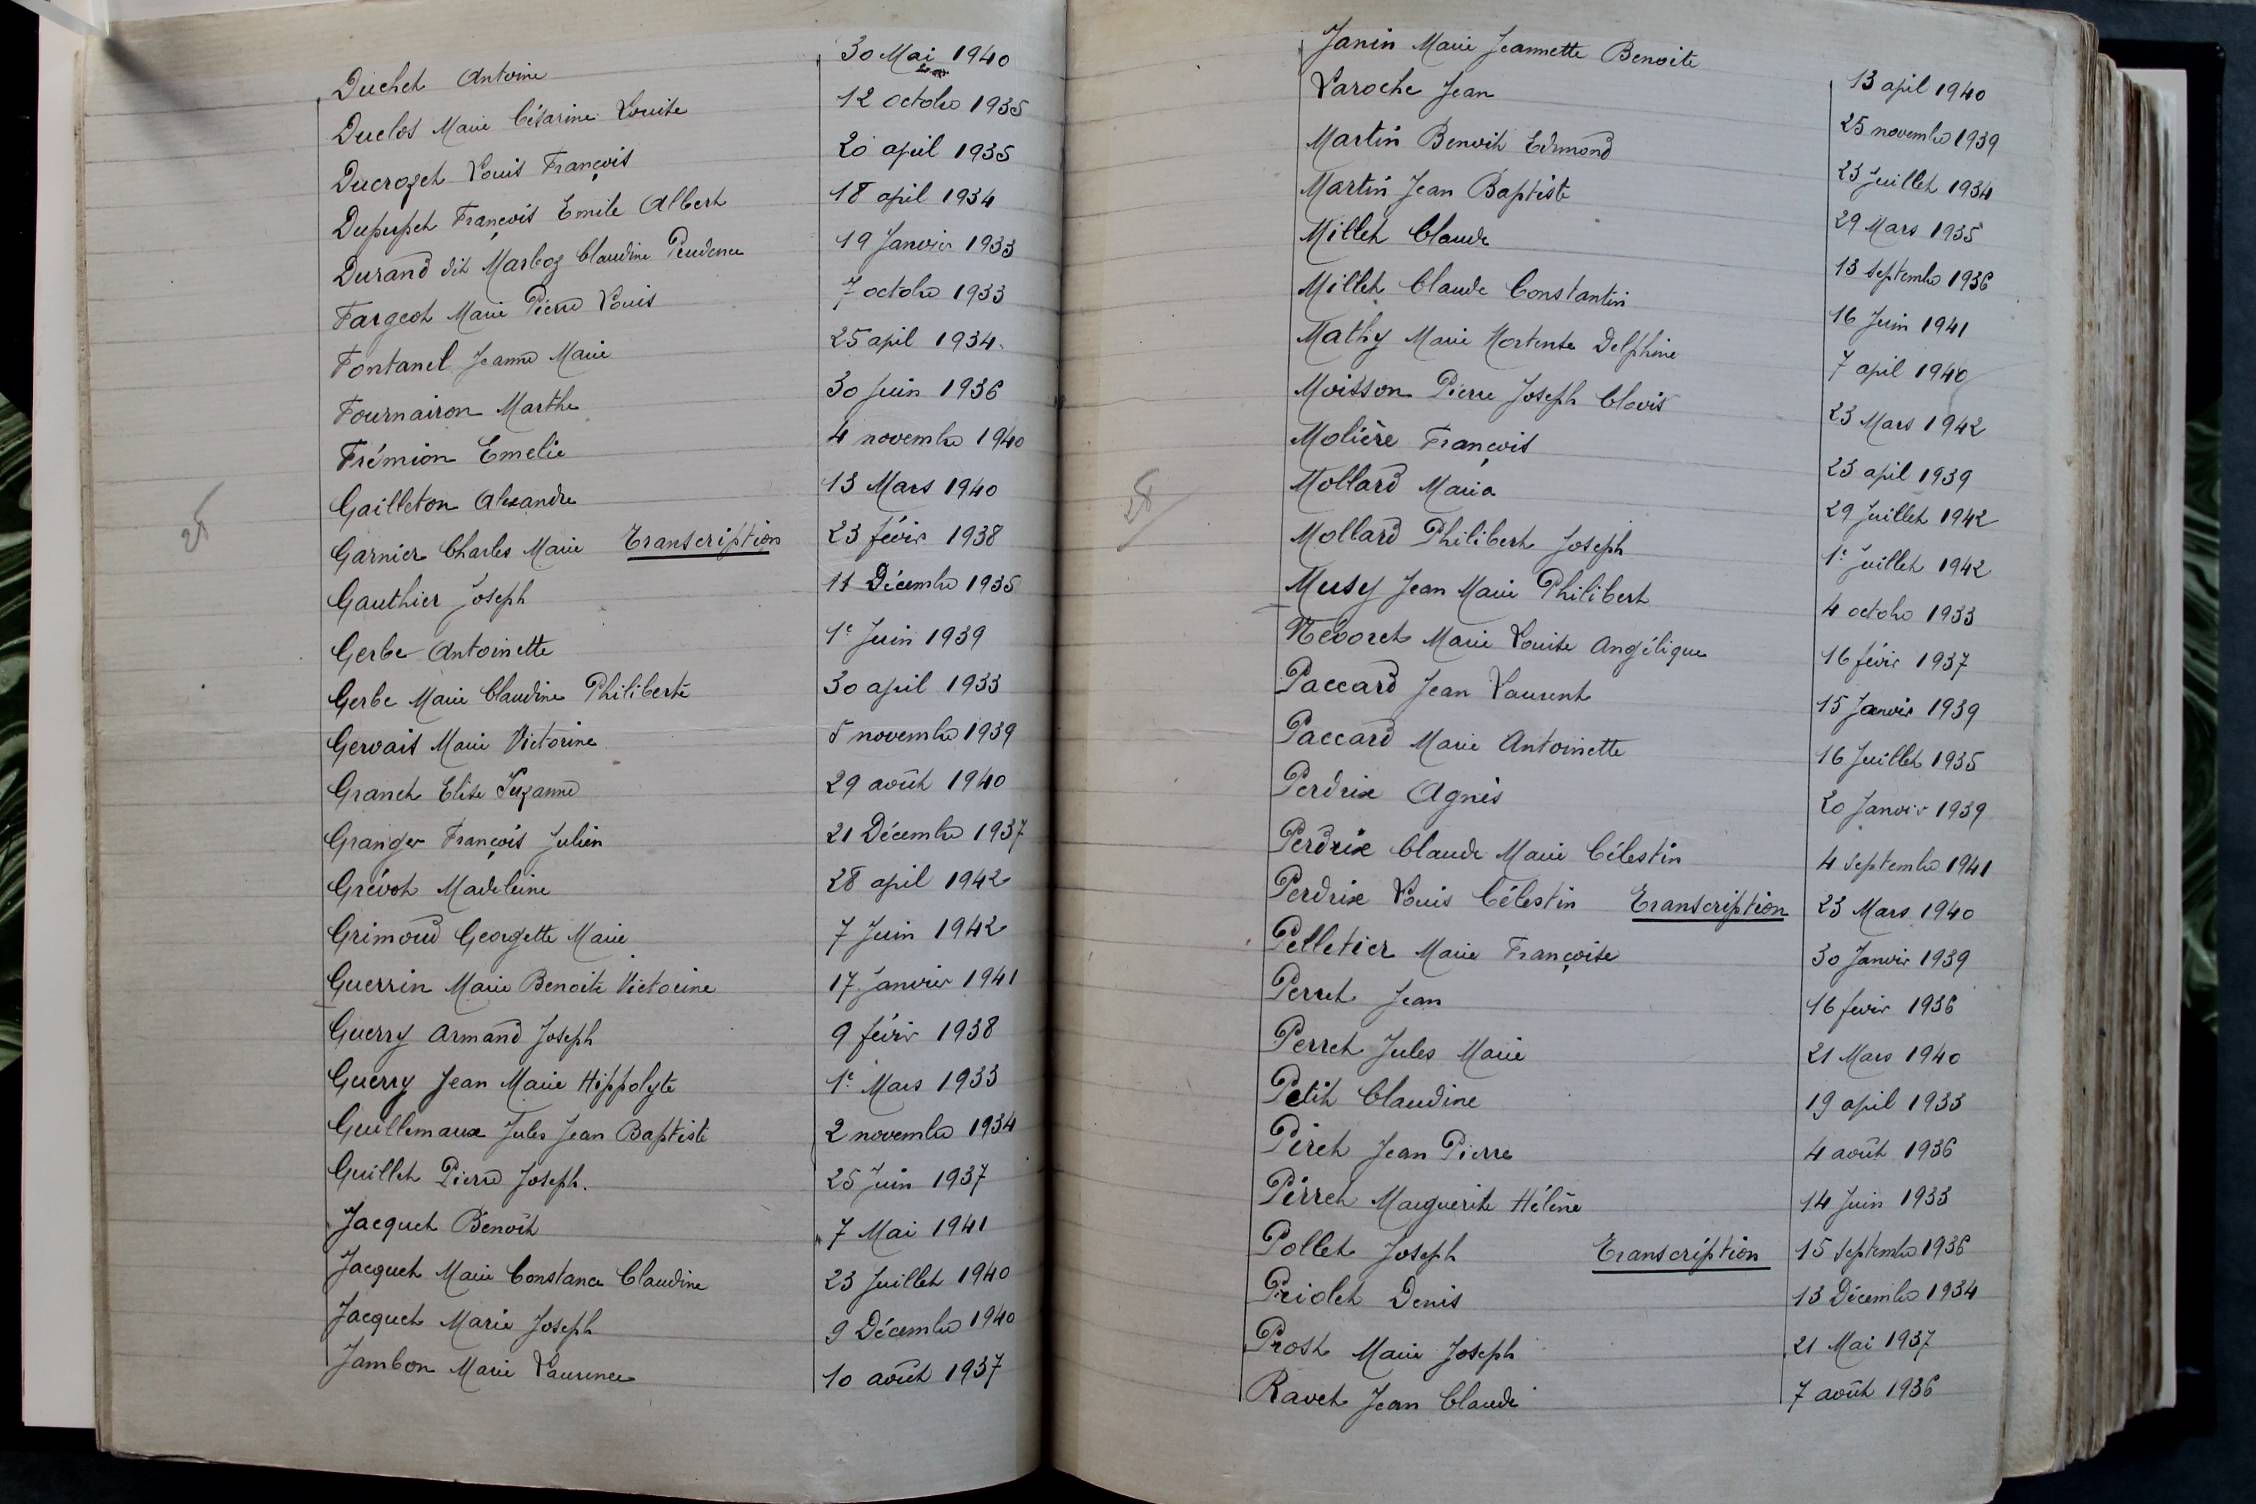 Duchet Antoine 30 Mai 1940
Duclos Marie Césarine Louise 12 octobre 1935
Ducrozet Louis François 20 april 1935
Duperpet François Emile Albert 18 april 1934
Durand dit Marboz Claudine Prudence 19 Janvier 1933
Fargeot Marie Pierre Louis 7 octobre 1933
Fontanel Jeanne Marie 25 april 1934
Fournairon Marthe 30 Juin 1936
Frémion Emelie 4 novembre 1940
Gailleton Alexandre 13 Mars 1940
28
Garnier Charles Marie Transcription 23 févir 1938
Gauthier Joseph 11 Décembre 1935
Gerbe Antoinette 1e Juin 1939
Gerbe Marie Claudine Philiberte 30 april 1933
Gervais Marie Victorine 5 novembre 1939
Granet Elise Suzanne 29 août 1940
Granger François Julien 21 Décembre 1937
Grévot Madeleine 28 april 1942
Grimoud Georgette Marie 7 Juin 1942
Guerrin Marie Benoite Victorine 17 Janvier 1941
Guerry Armand Joseph 9 févir 1938
Guerry Jean Marie Hippolyte 1e Mars 1933
Guillemaux Jules Jean Baptiste 2 novembre 1934
Guillet Pierre Joseph. 25 Juin 1937
Jacquet Benoît 7 Mai 1941
Jacquet Marie Constance Claudine 23 Juillet 1940
Jacquet Marie Joseph 9 Décembre 1940
Jambon Marie Laurence 10 août 1937
Janin Marie Jeannette Benoite 13 april 1940
Laroche Jean 25 novembre 1939
Martin Benoit Edmond 23 Juillet 1934
Martin Jean Baptiste 29 Mars 1935
Millet Claude 13 septembre 1936
Millet Claude Constantin 16 Juin 1941
Mathy Marie Hortense Delphine 7 april 1940
Moisson Pierre Joseph Clovis 23 Mars 1942
Molière François 23 april 1939
28
Mollard Maria 29 Juillet 1942
Mollard Philibert Joseph 1e Juillet 1942
Musy Jean Marie Philibert 4 octobre 1933
Nevoret Marie Louise Angélique 16 févir 1937
Paccard Jean Laurent 15 Janvir 1939
Paccard Marie Antoinette 16 Juillet 1935
Perdrix Agnès 20 Janvir 1939
Perdrix Claude Marie Célestin 4 septembre 1941
Perdrix Louis Célestin Transcription 23 Mars 1940
Pelletier Marie Françoise 30 Janvir 1939
Perret Jean 16 fevir 1936
Perret Jules Marie 21 Mars 1940
Petit Claudine 19 april 1933
Piret Jean Pierre 4 août 1936
Pirret Marguerite Hélène 14 Juin 1933
Pollet Joseph Transcription 15 septembre 1936
Priolet Denis 13 Décembre 1934
Prost Marie Joseph 21 Mai 1937
Ravet Jean Claude 7 août 1936